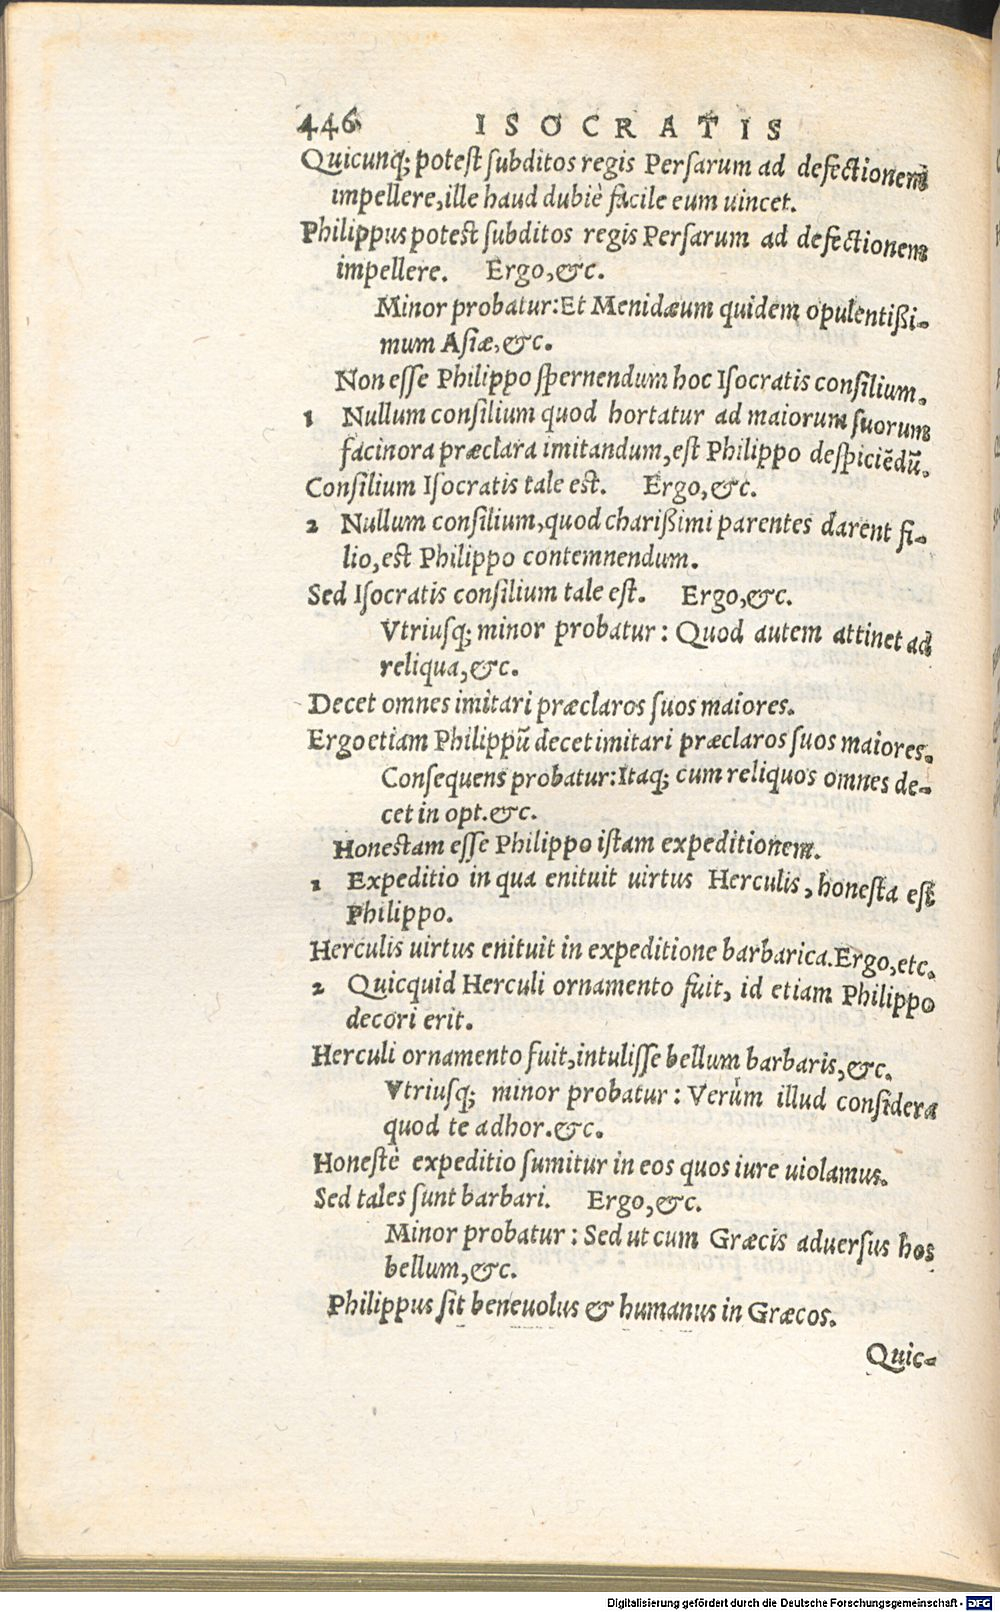 446 ISOCRATIS
Quicunq; potest subditos regis Persarum ad defectionem
impellere, ille haud dubiè facile eum uincet.
Philippus potest subditos regis Persarum ad defectionem
impellere. Ergo, &c.
Minor probatur: Et Menidæum quidem opulentißi-
mum Asiæ, &c.
Non esse Philippo spernendum hoc Isocratis consilium.
1 Nullum consilium quod hortatur ad maiorum suorum
facinora præclara imitandum, est Philippo despiciẽdũ.
Consilium Isocratis tale est. Ergo, &c.
2 Nullum consilium, quod charißimi parentes darent fi-
lio, est Philippo contemnendum.
Sed Isocratis consilium tale est. Ergo, &c.
Vtriusq; minor probatur: Quod autem attinet ad
reliqua, &c.
Decet omnes imitari præclaros suos maiores.
Ergo etiam Philippũ decet imitari præclaros suos maiores.
Consequens probatur: Itaq; cum reliquos omnes de-
cet in opt. &c.
Honestam esse Philippo istam expeditionem.
1 Expeditio in qua enituit uirtus Herculis, honesta est
Philippo.
Herculis uirtus enituit in expeditione barbarica. Ergo, etc.
2 Quicquid Herculi ornamento fuit, id etiam Philippo
decori erit.
Herculi ornamento fuit, intulisse bellum barbaris, &c.
Vtriusq; minor probatur: Verùm illud considera
quod te adhor. &c.
Honestè expeditio sumitur in eos quos iure uiolamus.
Sed tales sunt barbari. Ergo, &c.
Minor probatur: Sed ut cum Græcis aduersus hos
bellum, &c.
Philippus sit beneuolus & humanus in Græcos.
Quic-
Digitalisierung gefördert durch die Deutsche Forschungsgemeinschaft - DFG